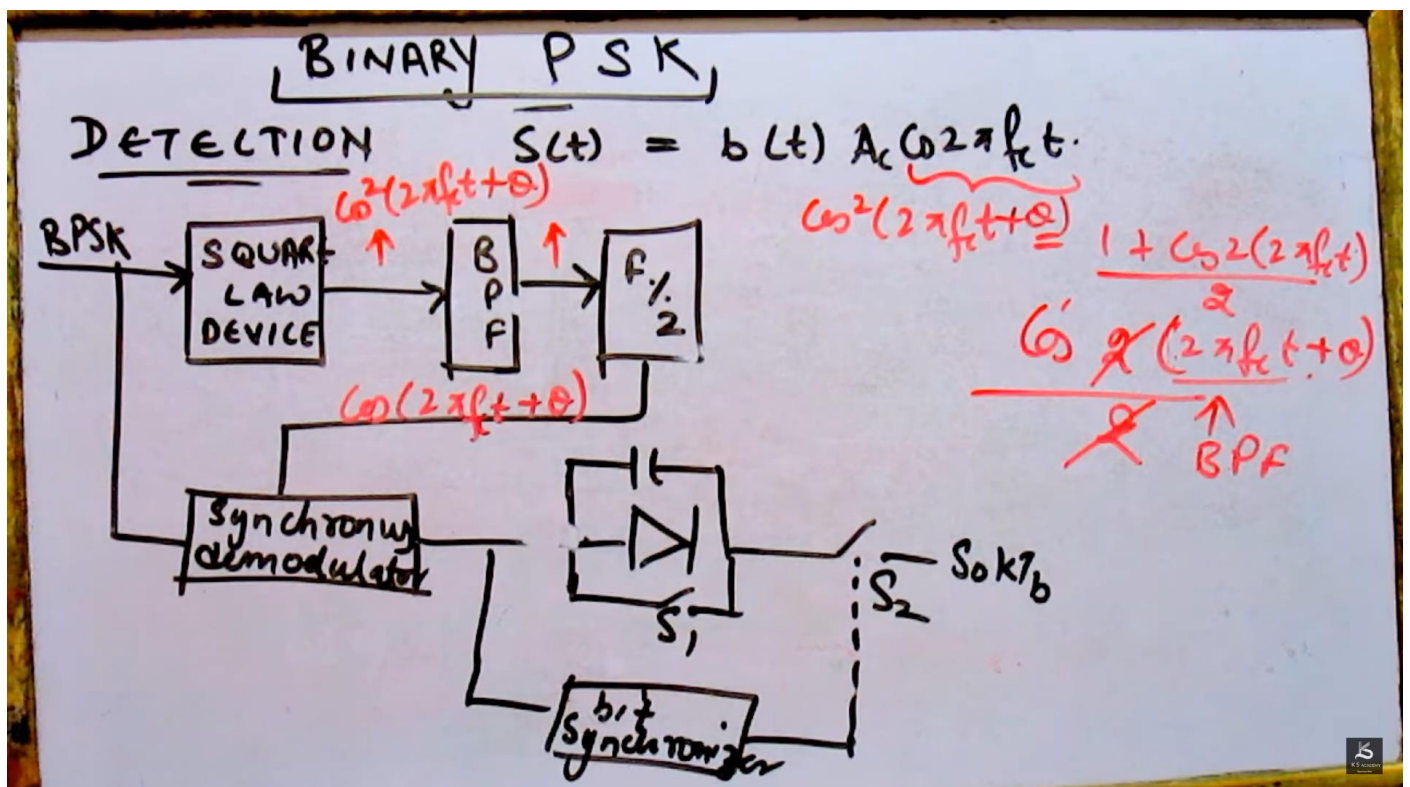 BINARY PSK
DETECTION S(t) = b(t) Ac Cos2πfct.
Cos²(2πfct+θ)
Cos²(2πfct+θ)
1 + Cos2(2πfct)
2
BPSK
SQUARE
LAW
DEVICE
B
P
F
F·/.
2
Cos 2(2πfct+θ)
2
BPF
Cos(2πfct+θ)
Synchronus
demodulator
S1
S2
S0kTb
bit
Synchronizer
KS ACADEMY